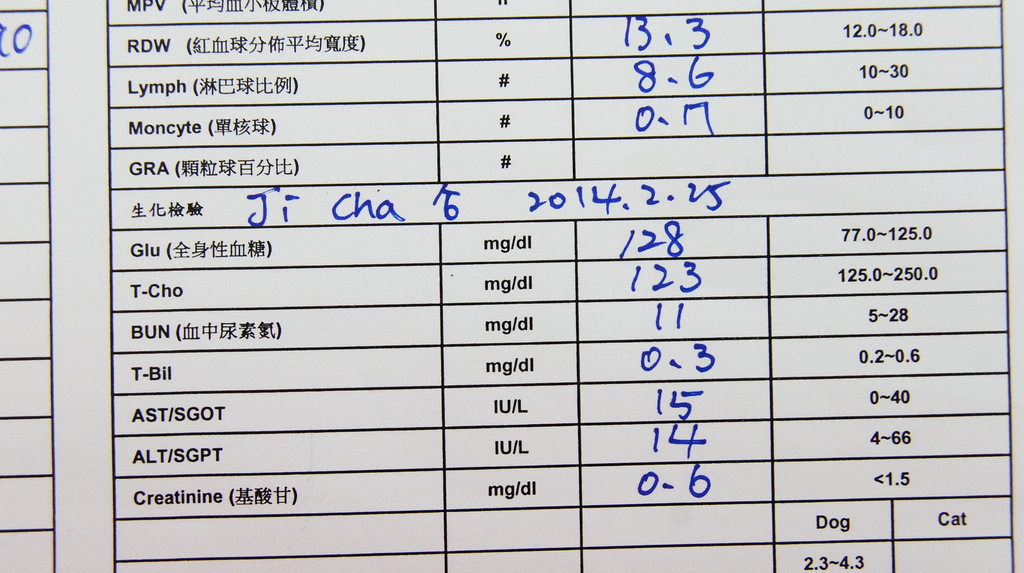 MPV (平均血小板體積)
RDW (紅血球分佈平均寬度) % 13.3 12.0~18.0
Lymph (淋巴球比例) # 8.6 10~30
Moncyte (單核球) # 0.7 0~10
GRA (顆粒球百分比) #
生化檢驗 Ji Cha 2014.2.25
Glu (全身性血糖) mg/dl 128 77.0~125.0
T-Cho mg/dl 123 125.0~250.0
BUN (血中尿素氮) mg/dl 11 5~28
T-Bil mg/dl 0.3 0.2~0.6
AST/SGOT IU/L 15 0~40
ALT/SGPT IU/L 14 4~66
Creatinine (基酸甘) mg/dl 0.6 <1.5
Dog Cat
2.3~4.3